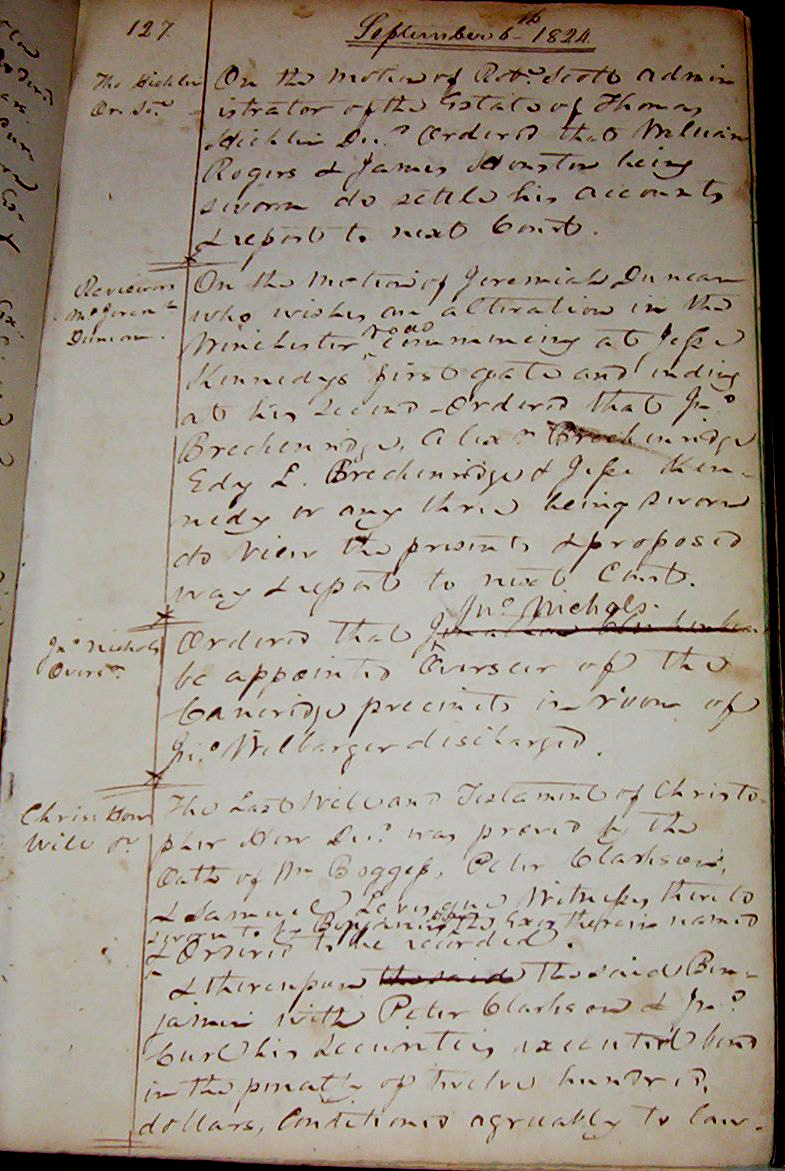 127
September 6th 1824
Tho Hicklin
On the motion of Robt Scott admin
istrator of the Estate of Thomas
Hicklin Decd Ordered that William
Rogers & James Houston being
sworn do settle his accounts
& report to next Court.
Reviewors
Mo Jeremh
Duncan.
On the motion of Jeremiah Duncan
who wishes an alteration in the
Winchester road commencing at Jesse
Kennedys first gate and ending
at his second Ordered that Jno
Breckenridge, Alexr Breckenridge
Edy L. Breckenridge & Jesse Ken-
nedy or any three being sworn
do view the present & proposed
way & report to next Court.
Jno Nichols
Overs.r
Jno Nichols.
Ordered that
be appointed Overseer of the
Caneridge precincts in room of
Jno Wilbarger discharged.
Chrisr How
Will &c
The Last Will and Testament of Christo-
pher How Decd was proved by the
Oath of Wm Boggess, Peter Clarkson,
& Samuel Levisque Witnesses thereto
sworn to by Benjamin Exor therein named
& Ordered to be recorded.
& thereupon the said the said Ben-
jamin with Peter Clarkson & Jno
Curl his Securities executed bond
in the penalty of twelve hundred
dollars, Conditioned agreeably to law.